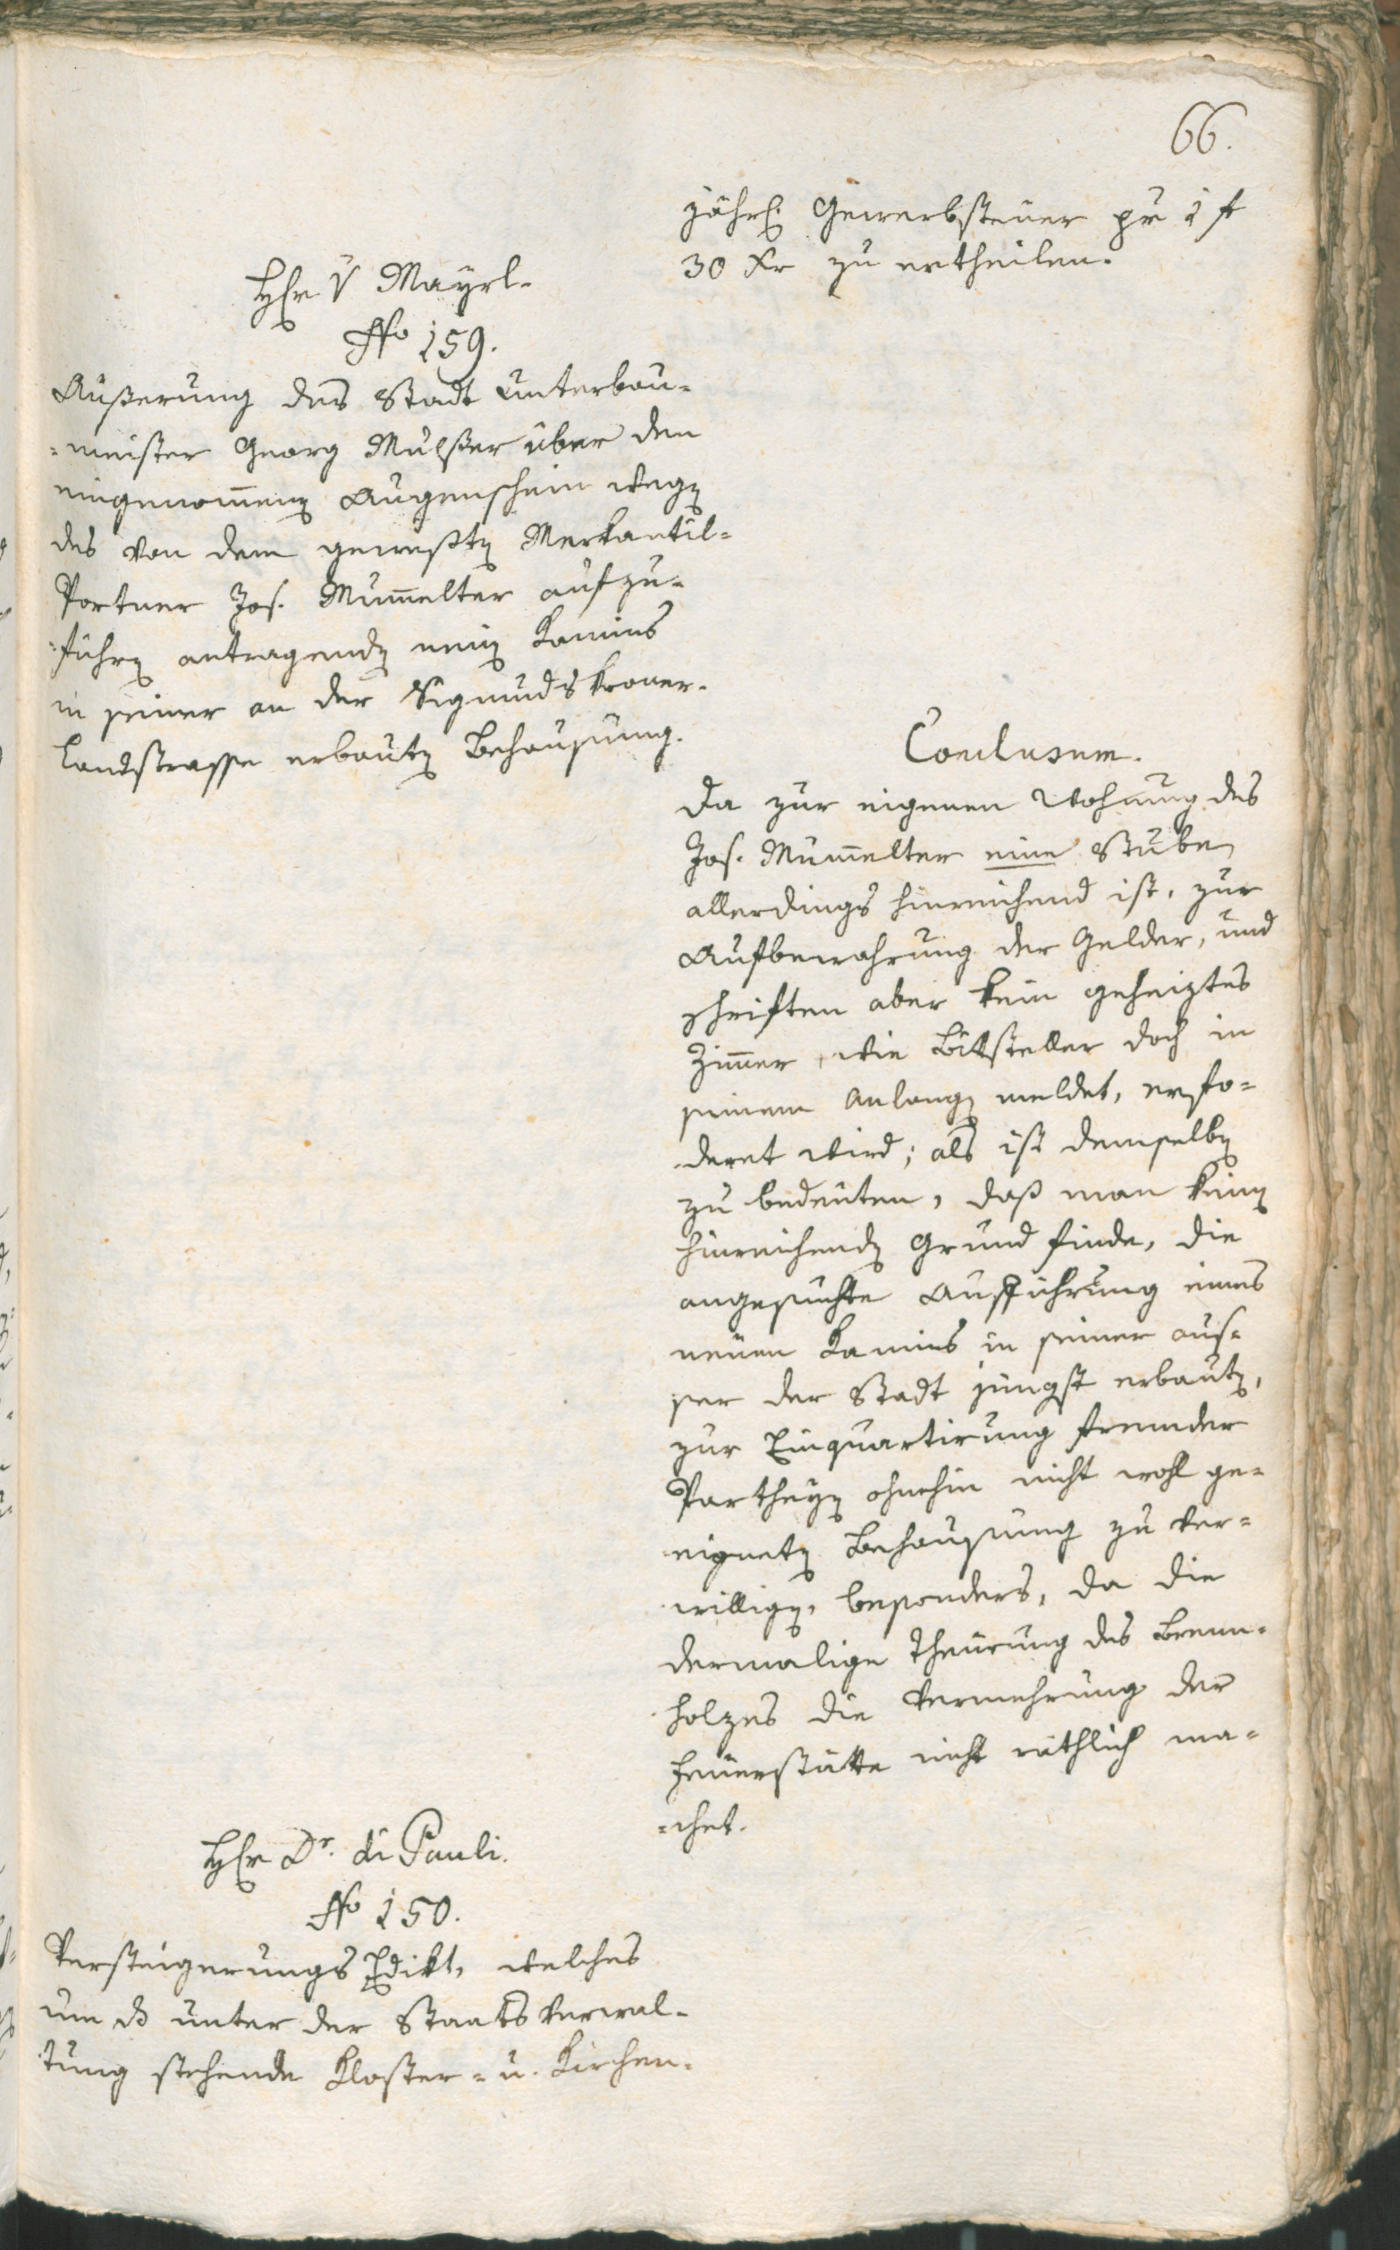 66.
jährl. Gewerbsteuer pr 1 f
30 Xr zu ertheilen.
Hr v Mayrl.
No 159.
Äußerung des Stadt Unterbau-
-meister Georg Mulßer über den
eingenommenen Augenschein wegen
des von dem gewesten Merkantil-
Portner Jos. Mumelter aufzu-
-führen antragenden neuen Kamins
in seiner an der Sigmundskroner-
Landstrasse erbauten Behausung.
Conclusum.
Da zur eigenen Wohnung des
Jos. Mumelter eine Stuben
allerdings hinreichend ist, zur
Aufbewahrung der Gelder, und
Schriften aber kein geheiztes
Zimmer, wie Bittsteller doch in
seinem Anlangen meldet, erfo-
deret wird; als ist demselben
zu bedeuten, daß man keinen
hinreichenden Grund finde, die
angesuchte Aufführung eines
neuen Kamins in seiner aus-
ser der Stadt jüngst erbauten,
zur Einquartirung fremder
Partheyen ohnehin nicht wohl ge-
eigneten Behausung zu ver-
willigen, besonders, da die
dermalige Theurung des Brenn-
holzes die Vermehrung der
Feuerstätte nicht räthlich ma-
-chet.
Hr Dr. di Pauli.
No 150.
Versteigerungs Edikt, welches
um unter der Staats Verwal-
tung stehende Kloster- u. Kirchen-